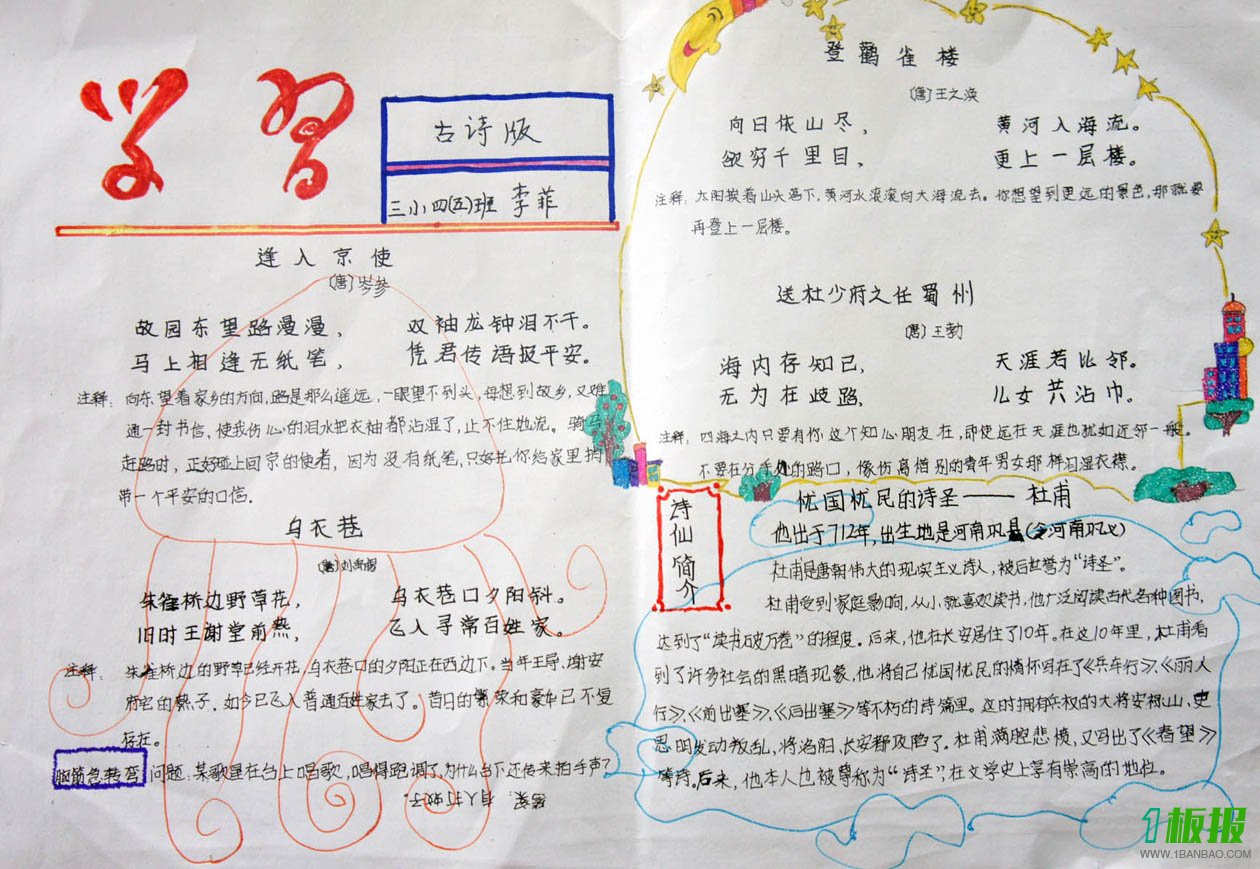 学习
古诗版
三小四(五)班 李菲
逢入京使
〔唐〕岑参
故园东望路漫漫， 双袖龙钟泪不干。
马上相逢无纸笔， 凭君传语报平安。
注释：向东望着家乡的方向，路是那么遥远，一眼望不到头，每想到故乡，又难
通一封书信、使我伤心的泪水把衣袖都沾湿了，止不住地流。骑马
赶路时，正好碰上回京的使者，因为没有纸笔，只好托你给家里捎
带一个平安的口信。
乌衣巷
〔唐〕刘禹锡
朱雀桥边野草花， 乌衣巷口夕阳斜。
旧时王谢堂前燕， 飞入寻常百姓家。
注释：朱雀桥边的野草已经开花，乌衣巷口的夕阳正在西边下。当年王导、谢安
府宅的燕子，如今已飞入普通百姓家去了。昔日的繁荣和豪华已不复
存在。
脑筋急转弯 问题：某歌星在台上唱歌，唱得跑调了，为什么台下还传来拍手声？
答案：有人打蚊子。
登鹳雀楼
〔唐〕王之涣
向日依山尽， 黄河入海流。
欲穷千里目， 更上一层楼。
注释：太阳挨着山头落下，黄河水滚滚向大海流去。你想望到更远的景色，那就要
再登上一层楼。
送杜少府之任蜀州
〔唐〕王勃
海内存知己， 天涯若比邻。
无为在歧路， 儿女共沾巾。
注释：四海之内只要有你这个知心朋友在，即使远在天涯也犹如近邻一般。
不要在分手处的路口，像伤离惜别的青年男女那样泪湿衣襟。
诗仙简介
忧国忧民的诗圣——杜甫
他出于712年，出生地是河南巩县(今河南巩义)
杜甫是唐朝伟大的现实主义诗人，被后世誉为“诗圣”。
杜甫受到家庭影响，从小就喜欢读书，他广泛阅读古代名种图书，
达到了“读书破万卷”的程度。后来，他在长安居住了10年。在这10年里，杜甫看
到了许多社会的黑暗现象，他将自己忧国忧民的情怀写在了《兵车行》、《丽人
行》、《前出塞》、《后出塞》等不朽的诗篇里。这时拥有兵权的大将安禄山、史
思明发动叛乱，将洛阳、长安都攻陷了。杜甫满腔悲愤，又写出了《春望》
等诗。后来，他本人也被尊称为“诗圣”，在文学史上享有崇高的地位。
1板报
WWW.1BANBAO.COM